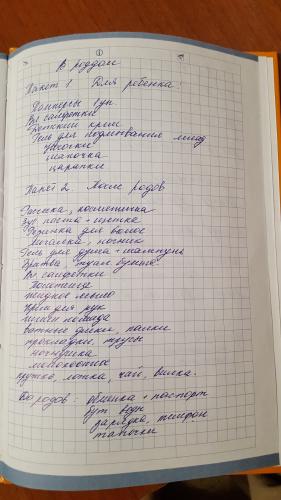 ①
В роддом
Пакет 1 Для ребенка
Памперсы 1 уп.
Вл. салфетки
Детский крем
Гель для подмывания млад
Носочки
шапочка
царапки
Пакет 2. После родов
Расческа, косметичка
Зуб. паста + щетка
Резинка для волос
Мочалка,
Гель для душа + шампунь
туал. бумага
Вл. салфетки
Полотенце
жидкое мыло
Крем для рук
помада
ватные диски, палки.
прокладки, трусы
ночнушка
молокоотсос
кружка, ложка, чай, вилка.
До родов: обменка + паспорт
бут. воды
зарядка, телефон
тапочки